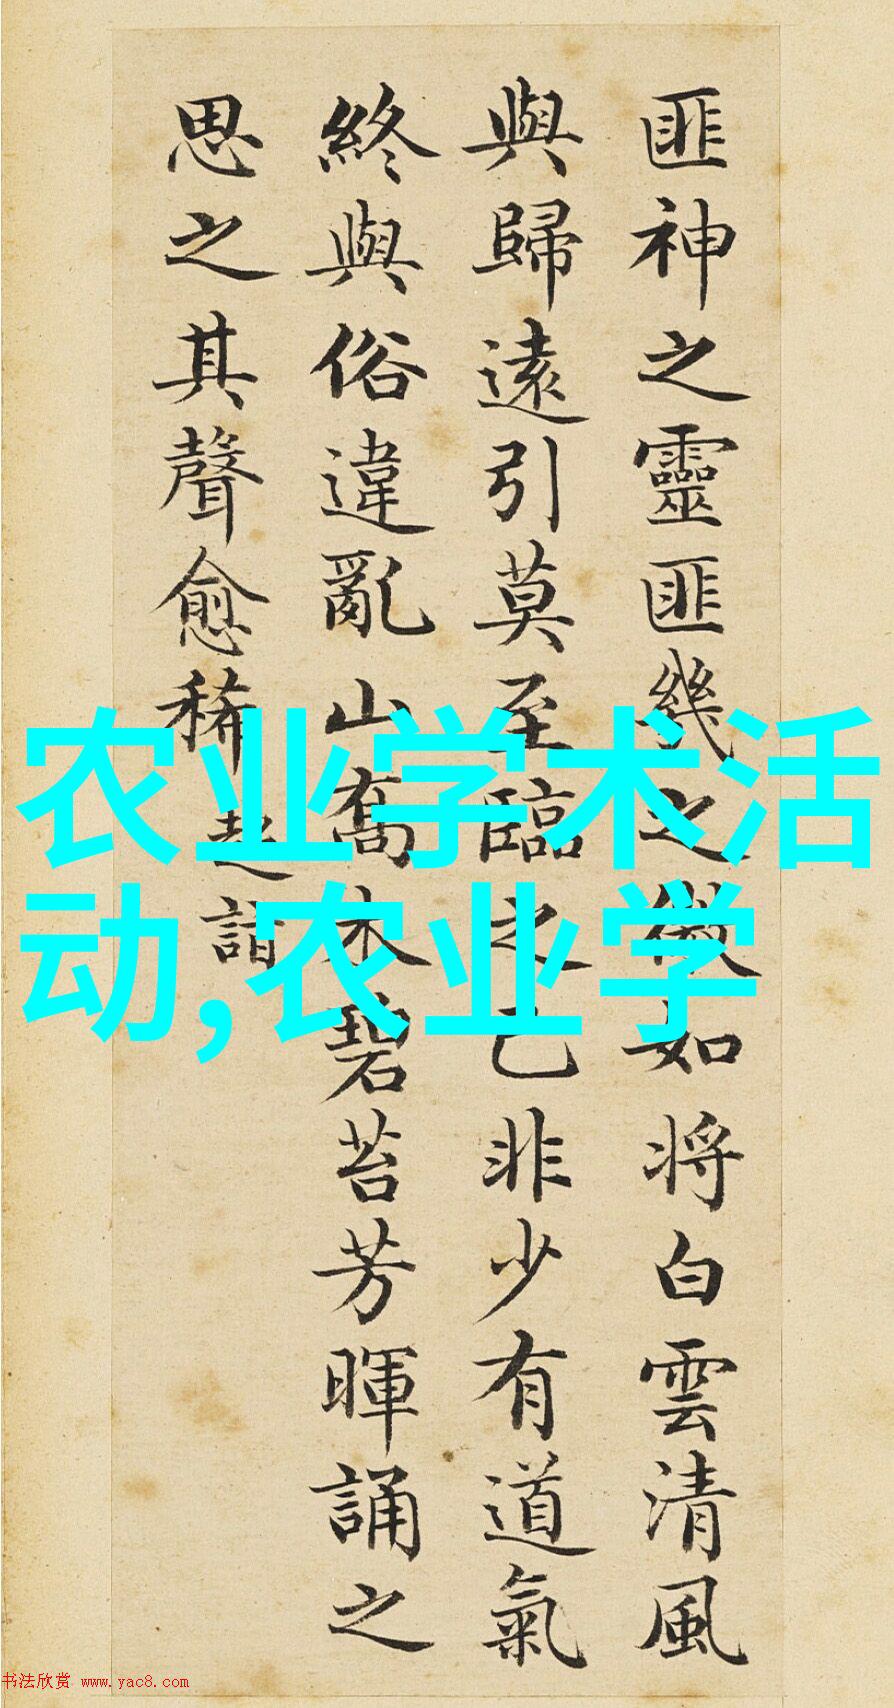 匪神之靈匪匪幾之微如将白雲清風
與歸遠引莫至臨之已非少有道氣
終與俗違亂山喬木碧苔芳暉誦之
思之其聲愈稀 超詣
农业学术活
动,农业学
书法欣赏 www.yac8.com